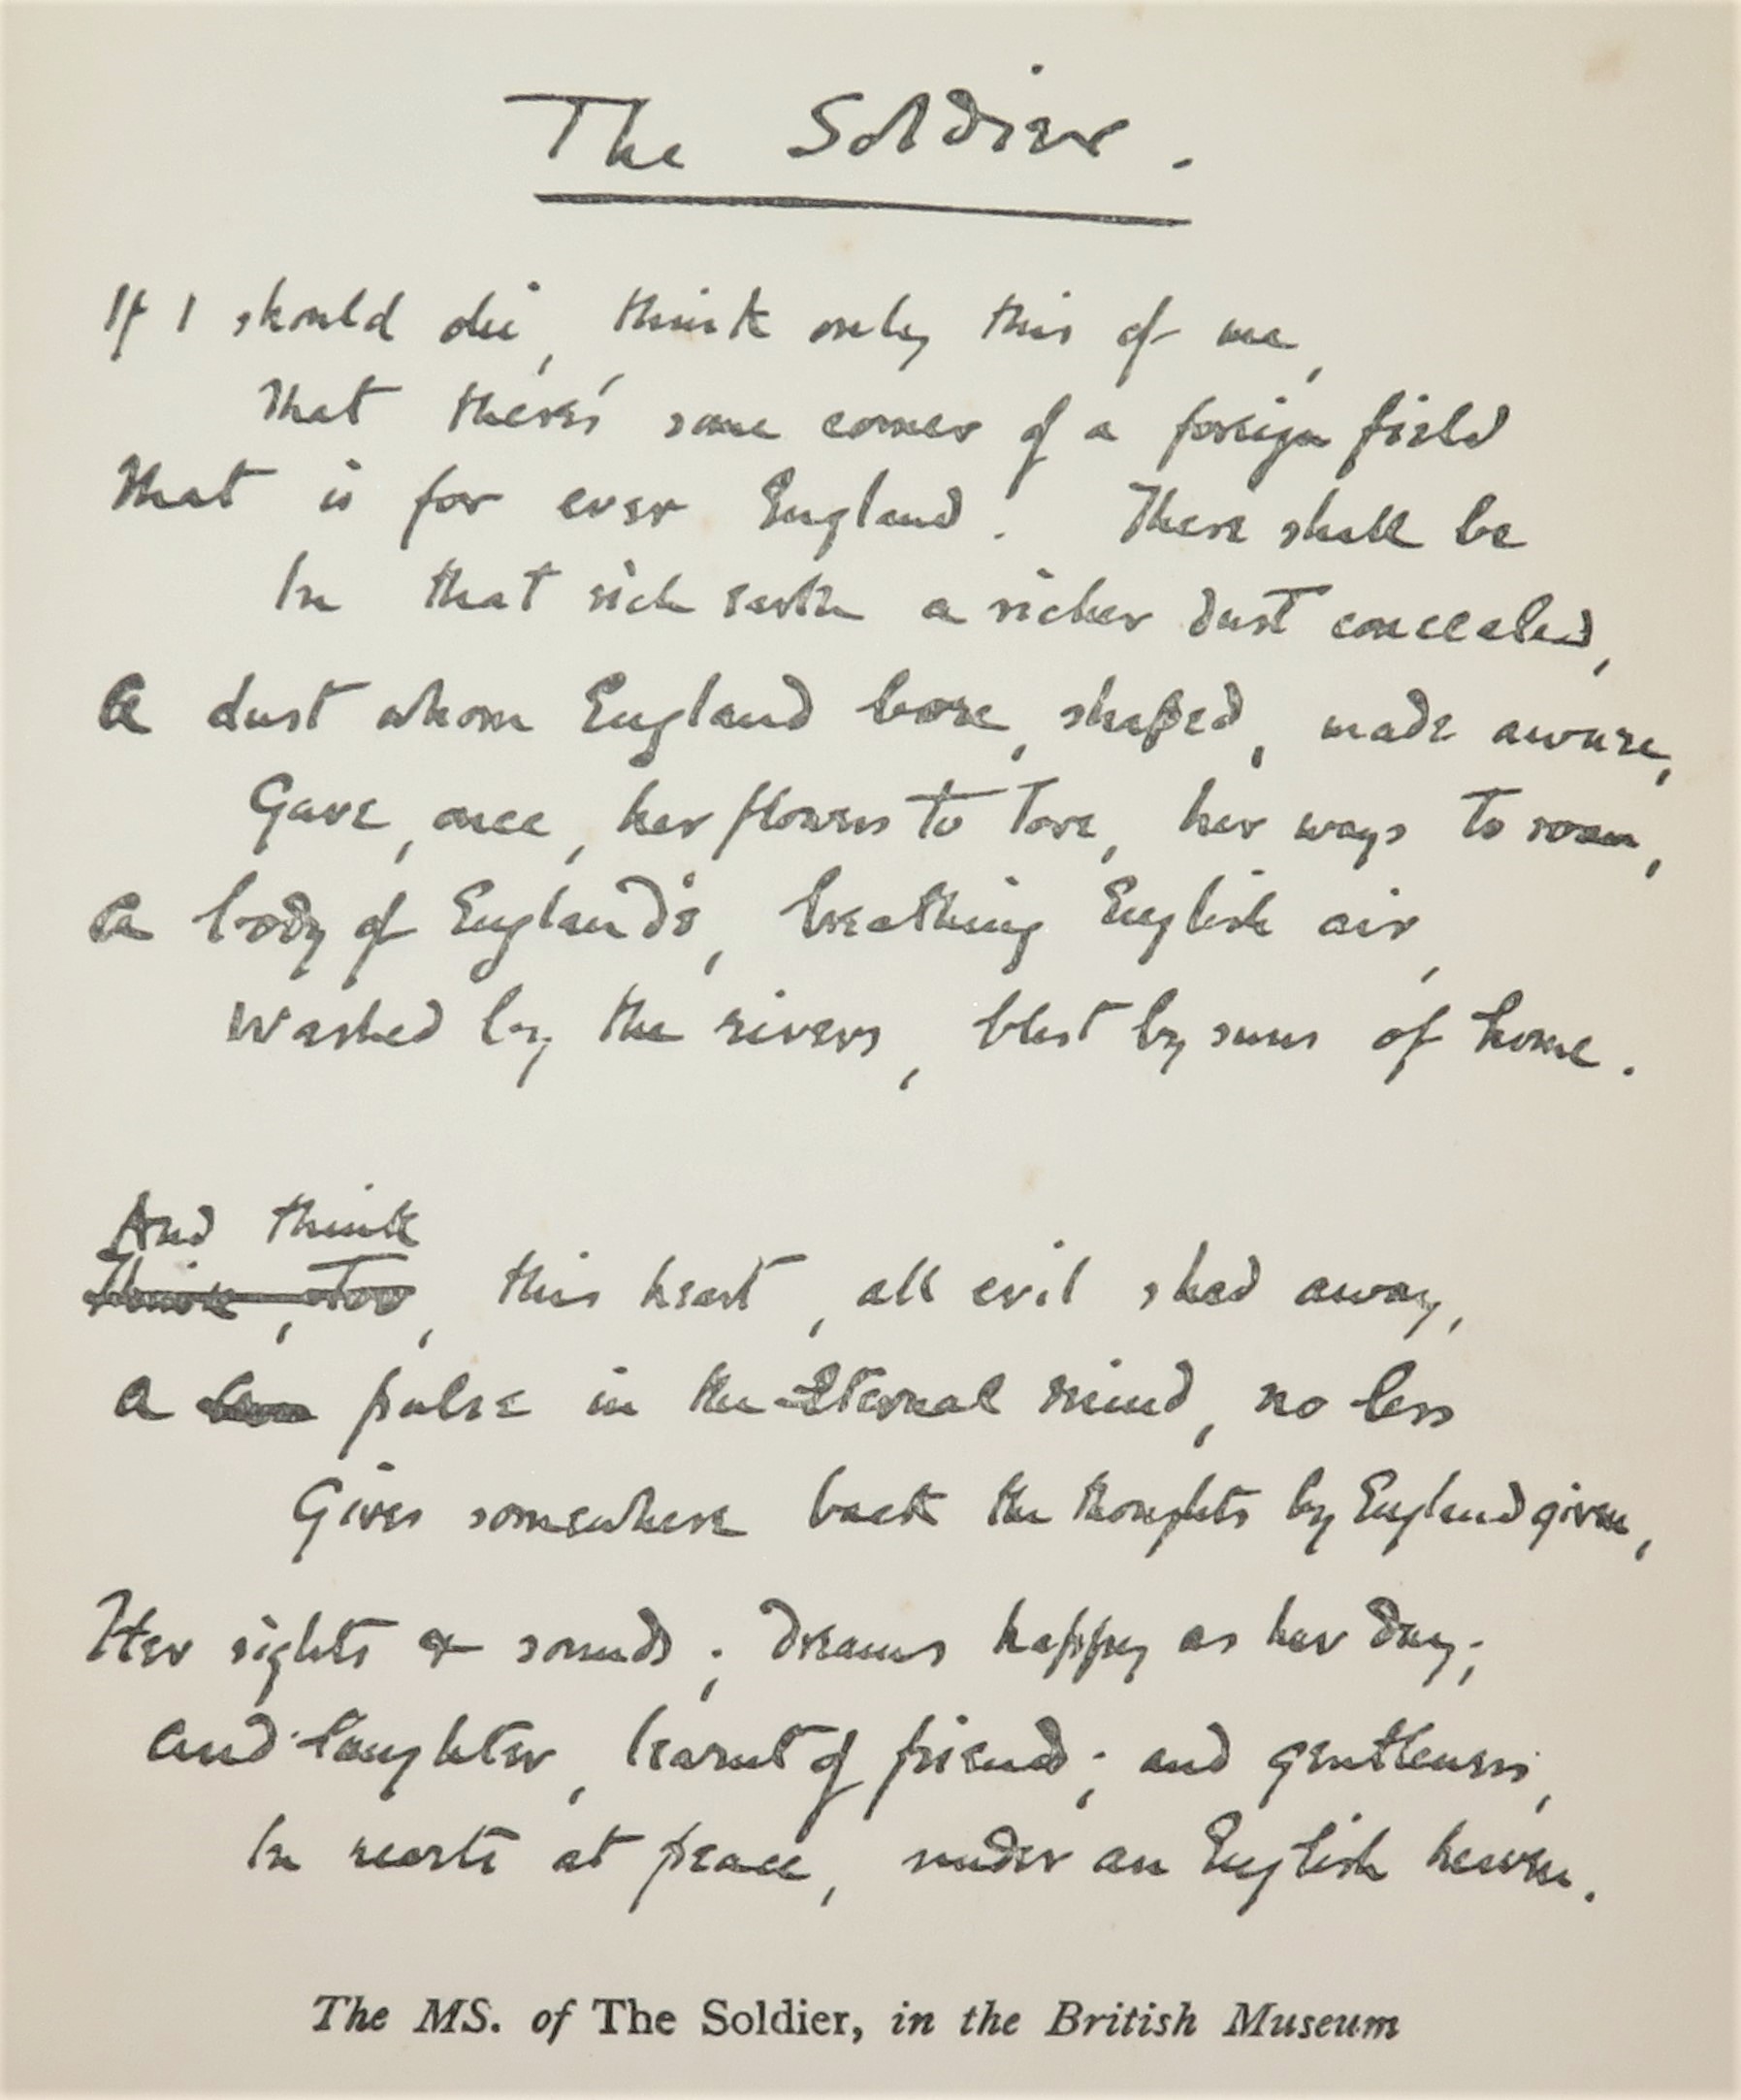 The Soldier.
If I should die, think only this of me,
That there's some corner of a foreign field
That is for ever England. There shall be
In that rich earth a richer dust concealed,
A dust whom England bore, shaped, made aware,
Gave, once, her flowers to love, her ways to roam,
A body of England's, breathing English air,
Washed by the rivers, blest by suns of home.
And think
Think, too, this heart, all evil shed away,
A pulse in the Eternal mind, no less
Gives somewhere back the thoughts by England given,
Her sights & sounds; dreams happy as her day;
And laughter, learnt of friends; and gentleness,
In hearts at peace, under an English heaven.
The MS. of The Soldier, in the British Museum